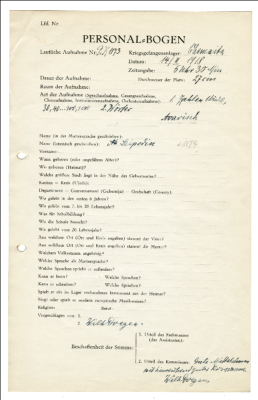 Lfd. Nr.
PERSONAL-BOGEN
Laufende Aufnahme Nr.
Kriegsgefangenenlager:
Datum: 1918
Zeitangabe:
Dauer der Aufnahme:
Durchmesser der Platte:
Raum der Aufnahme:
Art der Aufnahme (Sprachaufnahme, Gesangsaufnahme, 1. Zahlen
Choraufnahme, Instrumentenaufnahme, Orchesteraufnahme): 2. Wörter
Awarisch
Name (in der Muttersprache geschrieben):
Name (lateinisch geschrieben):
Vorname:
Wann geboren (oder ungefähres Alter)?
Wo geboren (Heimat)?
Welche größere Stadt liegt in der Nähe des Geburtsortes?
Kanton — Kreis (Ujedz)
Departement — Gouvernement (Gubernija) — Grafschaft (County)
Wo gelebt in den ersten 6 Jahren?
Wo gelebt vom 7. bis 20. Lebensjahr?
Was für Schulbildung?
Wo die Schule besucht?
Wo gelebt vom 20. Lebensjahr?
Aus welchem Ort (Ort und Kreis angeben) stammt der Vater?
Aus welchem Ort (Ort und Kreis angeben) stammt die Mutter?
Welchem Volksstamm angehörig?
Welche Sprache als Muttersprache?
Welche Sprachen spricht er außerdem?
Kann er lesen? Welche Sprachen?
Kann er schreiben? Welche Sprachen?
Spielt er ein im Lager vorhandenes Instrument aus der Heimat?
Singt oder spielt er moderne europäische Musikweisen?
Religion: Beruf:
Vorgeschlagen von: 1.
2. Wilh. Doegen
Beschaffenheit der Stimme:
1. Urteil des Fachmannes
(des Assistenten):
2. Urteil des Kommissars:
Wilh. Doegen